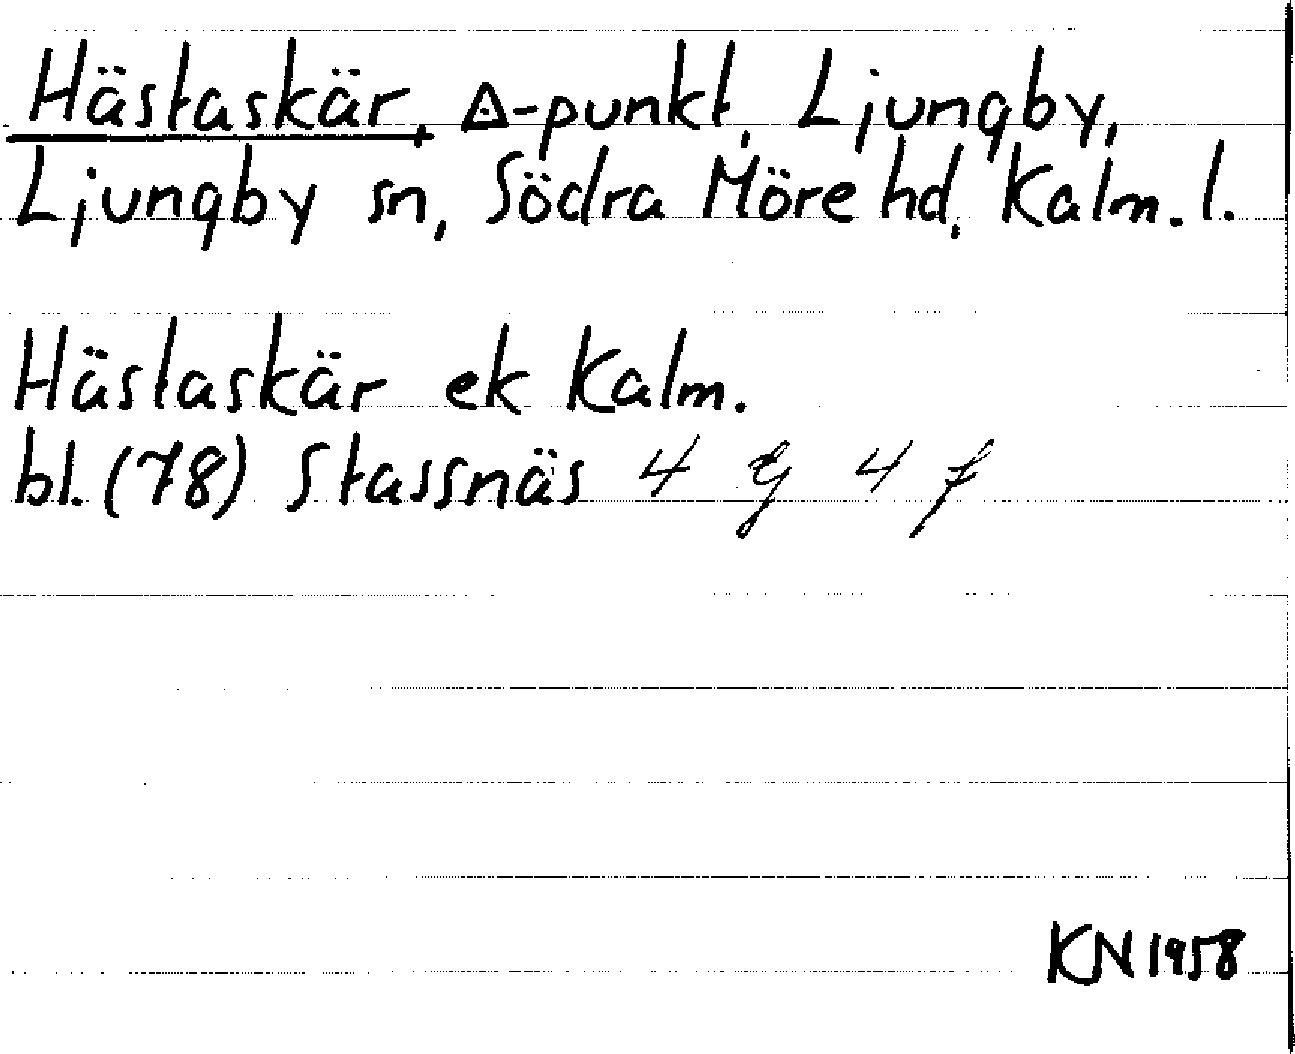 Hästaskär, △-punkt, Ljungby,
Ljungby sn, Södra Möre hd, Kalm. l.
Hästaskär ek Kalm.
bl. (78) Stassnäs 4 G 4 f
KN 1958